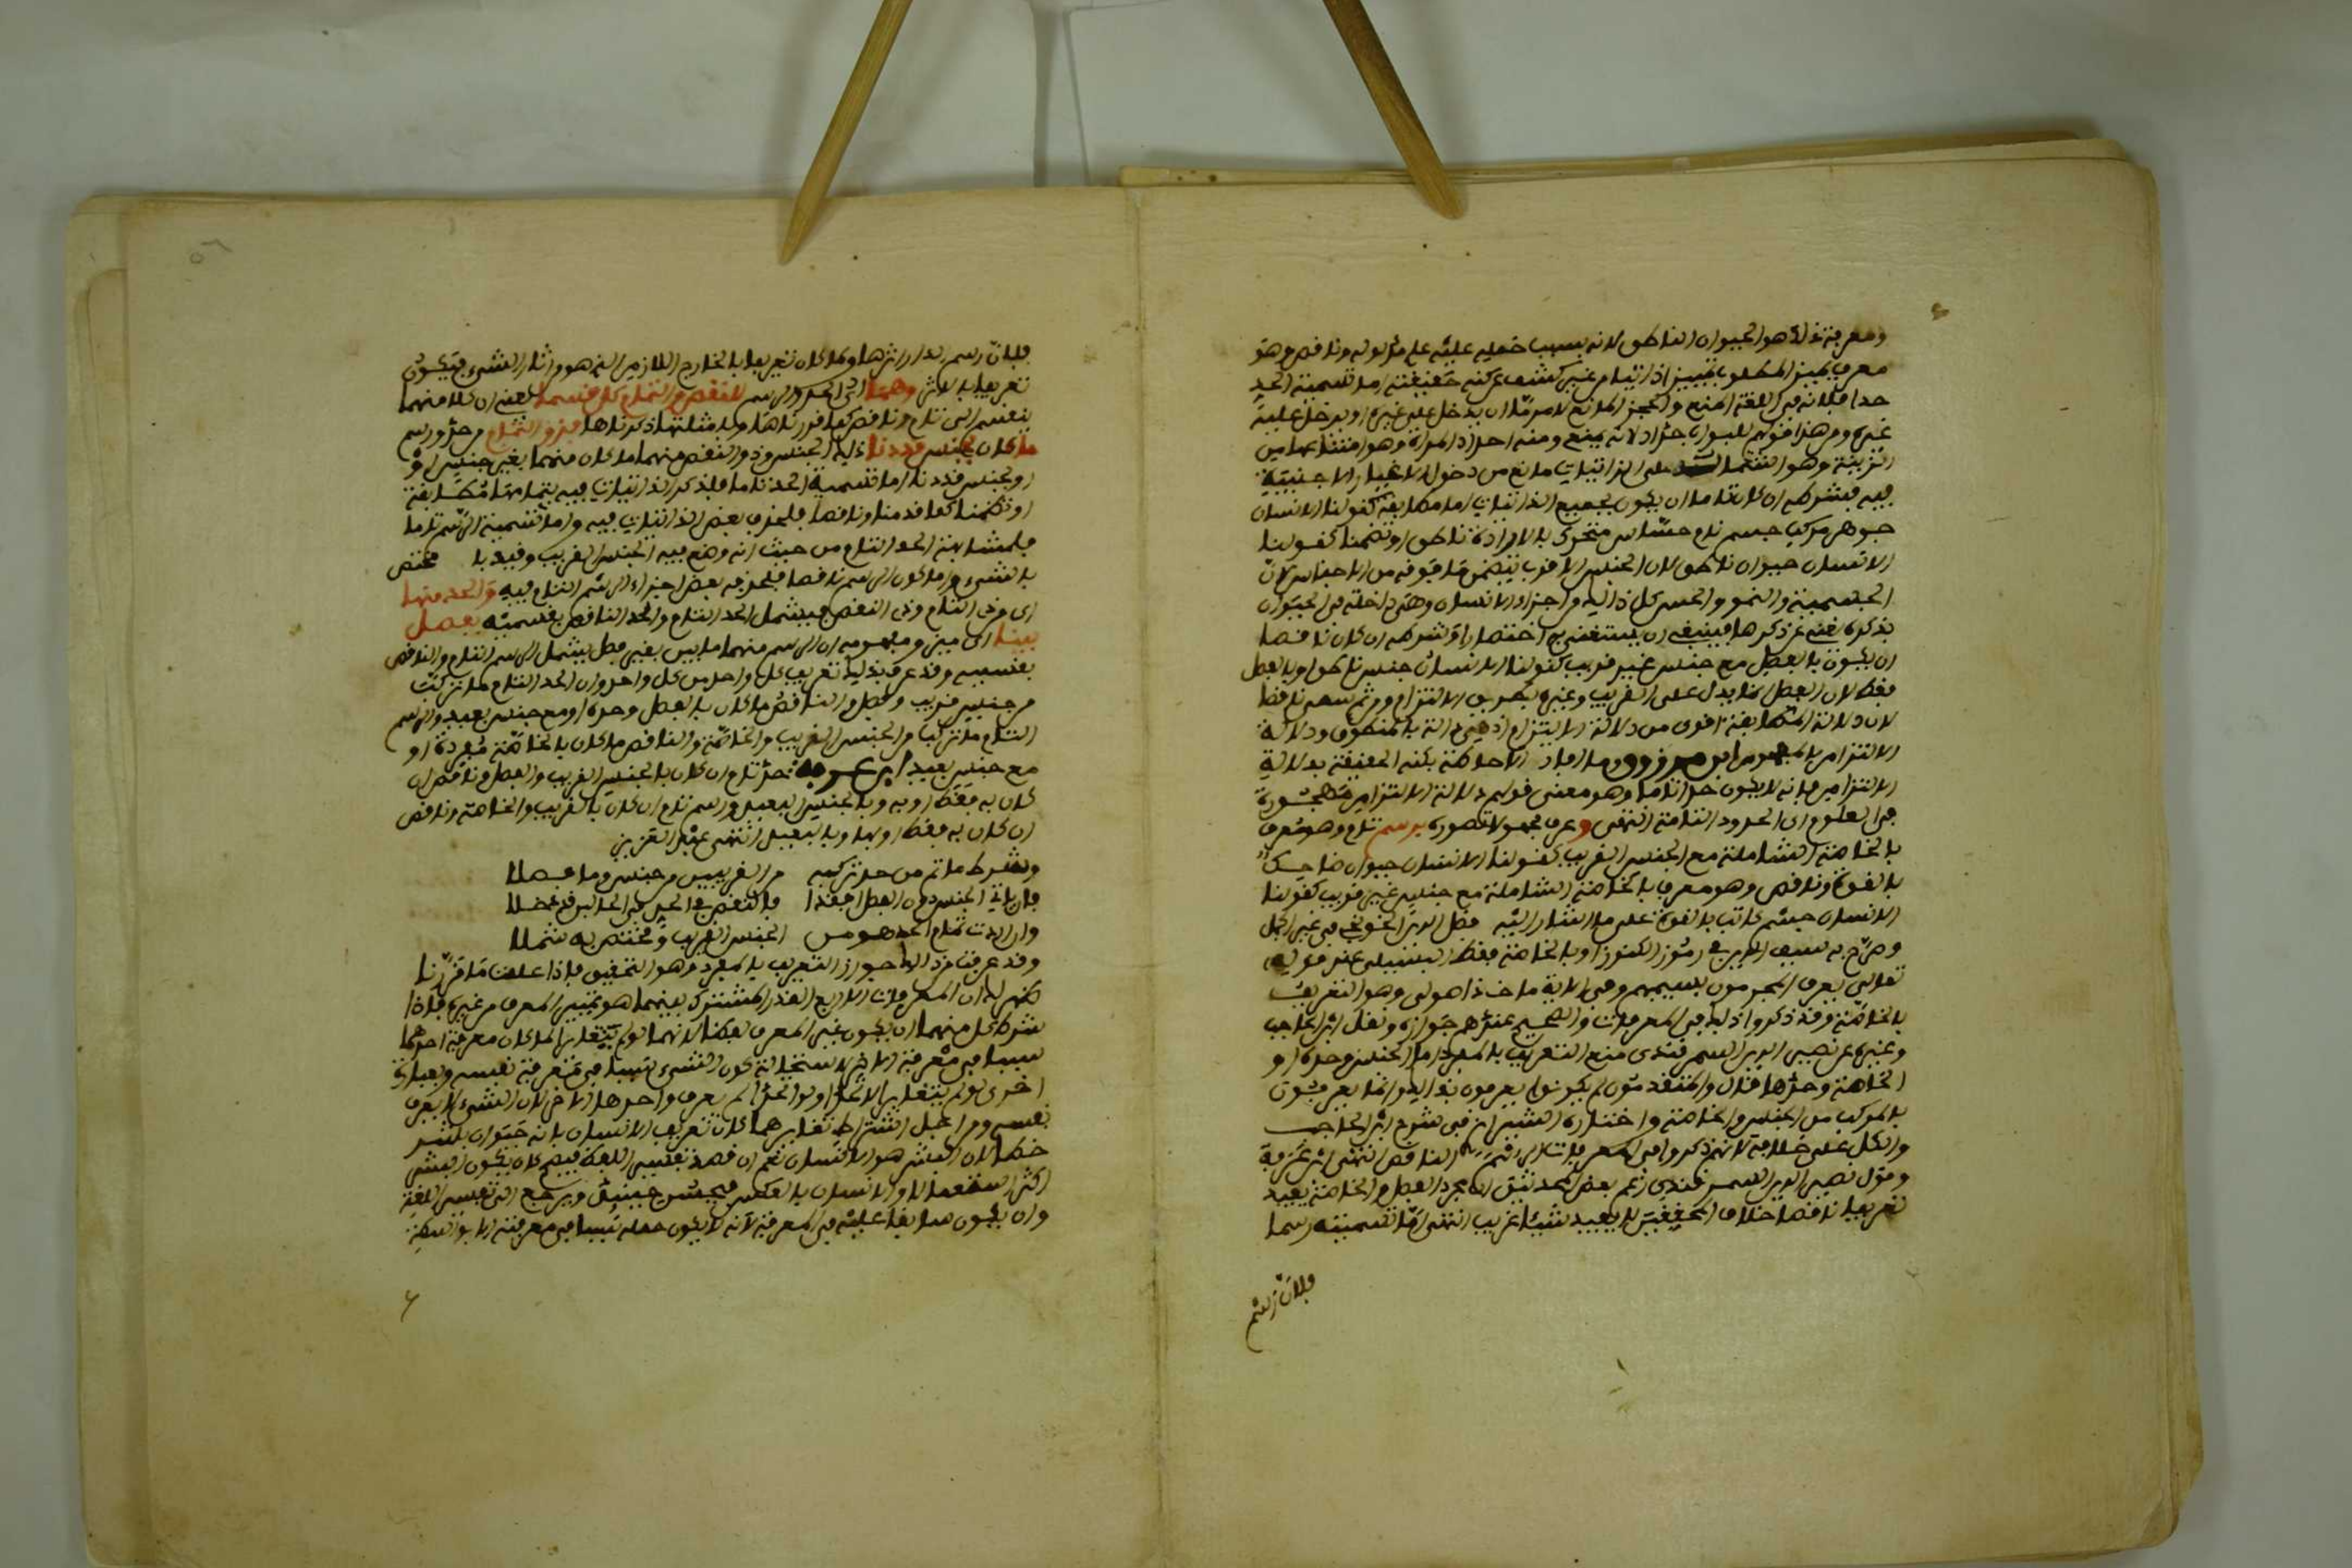 ومعرفته اذا هو الحيوان الناطق لانه بسبب حمليه عليه علم مدلوله وناقص وهو
معرف يميز المطلوب تمييزا ذاتيا من غير كشف عن كنه حقيقته اما تسمية الحد
حدا فلانه في اللغة المنع والحجز المانع لامر ما ان يدخل عليه غيره او يدخل علي
غيره ومن هذا قولهم للبواب حداد لانه يمنع ومنه احداد المراة وهو امتناعها من
الزينة وهو اشتماله على الذاتيات مانع من دخول الاغيار الاجنبية
فيه فشرطه ان كان تاما ان يكون بجميع الذاتيات اما مطابقة كقولنا الانسان
جوهر مركب جسم نام حساس متحرك بالارادة ناطق او تضمنا كقولنا
الانسان حيوان ناطق لان الجنس الاقرب يتضمن ما فوقه من الاجناس لان
الجسمية والنمو والحس كل ذلك من اجزاء الانسان وهي داخلة في الحيوان
بذكره يغني عن ذكرها فينبغي ان يستغنى به اختصارا وشرطه ان كان ناقصا
ان يكون بالفصل مع جنس غير قريب كقولنا الانسان جنس ناطق او بالفصل
فقط لان الفصل انما يدل على القريب وغيره بطريق الالتزام ومن ثم سمي ناقصا
لان دلالة المطابقة اقوى من دلالة الالتزام اذ هي دالة بالمنطوق ودلالة
الالتزام بالمفهوم ابن مرزوق ما افاد الاحاطة بكنه الحقيقة بدلالة
الالتزام فانه لا يكون حدا تاما وهو معنى قولهم دلالة الالتزام مهجورة
في العلوم اي الحدود التامة انتهى وعرف مجهولا تصوره برسم تام وهو معرف
بالخاصة الشاملة مع الجنس القريب كقولنا الانسان حيوان ضاحك
بالقوة وناقص وهو معرف بالخاصة الشاملة مع جنس غير قريب كقولنا
الانسان جسم كاتب بالقوة على ما اشار اليه فضل الدين الخونجي في غير الجمل
وصرح به سيف الدين في رموز الكنوز او بالخاصة فقط البسيلي عند قوله
تعالى يعرف المجرمون بسيماهم وفي الاية ماخذ اصولي وهو التعريف
بالخاصة وقد ذكروا ذلك في المعرفات والصحيح عندهم جوازه ونقل ابن الحاجب
وغيره عن نصير الدين السمرقندي منع التعريف بالمفرد اما الجنس وحده او
الخاصة وحدها قال والمتقدمون لم يكونوا يعرفون بذلك وانما يعرفون
بالمركب من الجنس والخاصة واختاره الشيرازي في شرح ابن الحاجب
والكل على خلافه لانهم ذكروا في المعرفات الرسم الناقص انتهى ابن عرفة
وقول نصير الدين السمرقندي زعم بعض المحدثين ان مجرد الفصل والخاصة يفيد
تعريفا ناقصا خلاف المحققين لا يفيد شيئا غريب انتهى اما تسميته رسما
فلان رسم
فلان رسم الدار اثرها ولما كان تعريفا بالخارج اللازم الذي هو من اثار الشيء فيكون
تعريفا بالاثر وهما اي الحد والرسم للنقص والتمام كل قسما بمعنى ان كلا منهما
ينقسم الى تام وناقص كما قررناها ولامثلتها ذكرناها فذو التمام من حد ورسم
ما كان بجنس قد دنا ذلك الجنس وذو النقص منهما ما كان منهما بغير جنس او
او بجنس قد دنا اما تسمية الحد تاما فلذكر الذاتيات فيه بتمامها مطابقة
او تضمنا كما قدمنا وناقصا فلحذف بعض الذاتيات فيه واما تسمية الرسم تاما
فلمشابهته الحد التام من حيث انه وضع فيه الجنس القريب وقيد با مختص
بالشيء واما كون الرسم ناقصا فلحذف بعض اجزاء الرسم التام فيه والحد منها
اي من ذي التام وذي النقص فيشمل الحد التام والحد الناقص بقسميه بفصل
بينا اي ميز ومفهومه ان الرسم منهما ما بين بغير فصل يشمل الرسم التام والناقص
بقسميه وقد عرف بذلك تعريف كل واحد من كل واحد وان الحد التام ما تركب
من جنس قريب وفصل والناقص ما كان بالفصل وحده او مع جنس بعيد والرسم
التام ما تركب من الجنس القريب والخاصة والناقص ما كان بالخاصة مفردة او
مع جنس بعيد ابن عرفة حد تام ان كان بالجنس القريب والفصل وناقص ان
كان به فقط او به وبالجنس البعيد ورسم تام ان كان بالقريب والخاصة وناقص
ان كان به فقط او بها وبالبعيد انتهى عبد العزيز
وشرط ما تم من حد تركبه من القريبين من جنس وما فصلا
فان يات الجنس دون الفصل او فقدا فالنقص في الحد في الحالين قد حصلا
وان اردت تمام الحد هو من الجنس القريب ومختص به شملا
وقد عرفت من ذلك جواز التعريف بالمفرد وهو التحقيق فاذا علمت ما قررنا
ظهر لك ان المعرفات الاربع القدر المشترك بينهما هو تمييز المعرف من غيره فلذا
شرط كل منهما ان يكون غير المعرف لفظا لانهما لو لم يتغايرا لما كان معرفة احدهما
سببا في معرفة الاخر لاستحالة كون الشيء سببا في معرفة نفسه وبعبارة
اخرى لو لم يتغايرا لاتحدا ولو اتحدا لم يعرف واحدهما الاخر لان الشيء لا يعرف
نفسه ومن اجل اشتراط تغايرهما كان تعريف الانسان بانه حيوان بشر
خطا لان البشر هو الانسان نعم ان قصد تفسير اللغة فيصح كان يكون البشر
اكثر استعمالا والانسان بالعكس فيحسن حينئذ ويرجع الى تفسير اللغة
وان يكون سابقا عليه في المعرفة لانه لا يكون حمله سببا في معرفته الا بواسطة